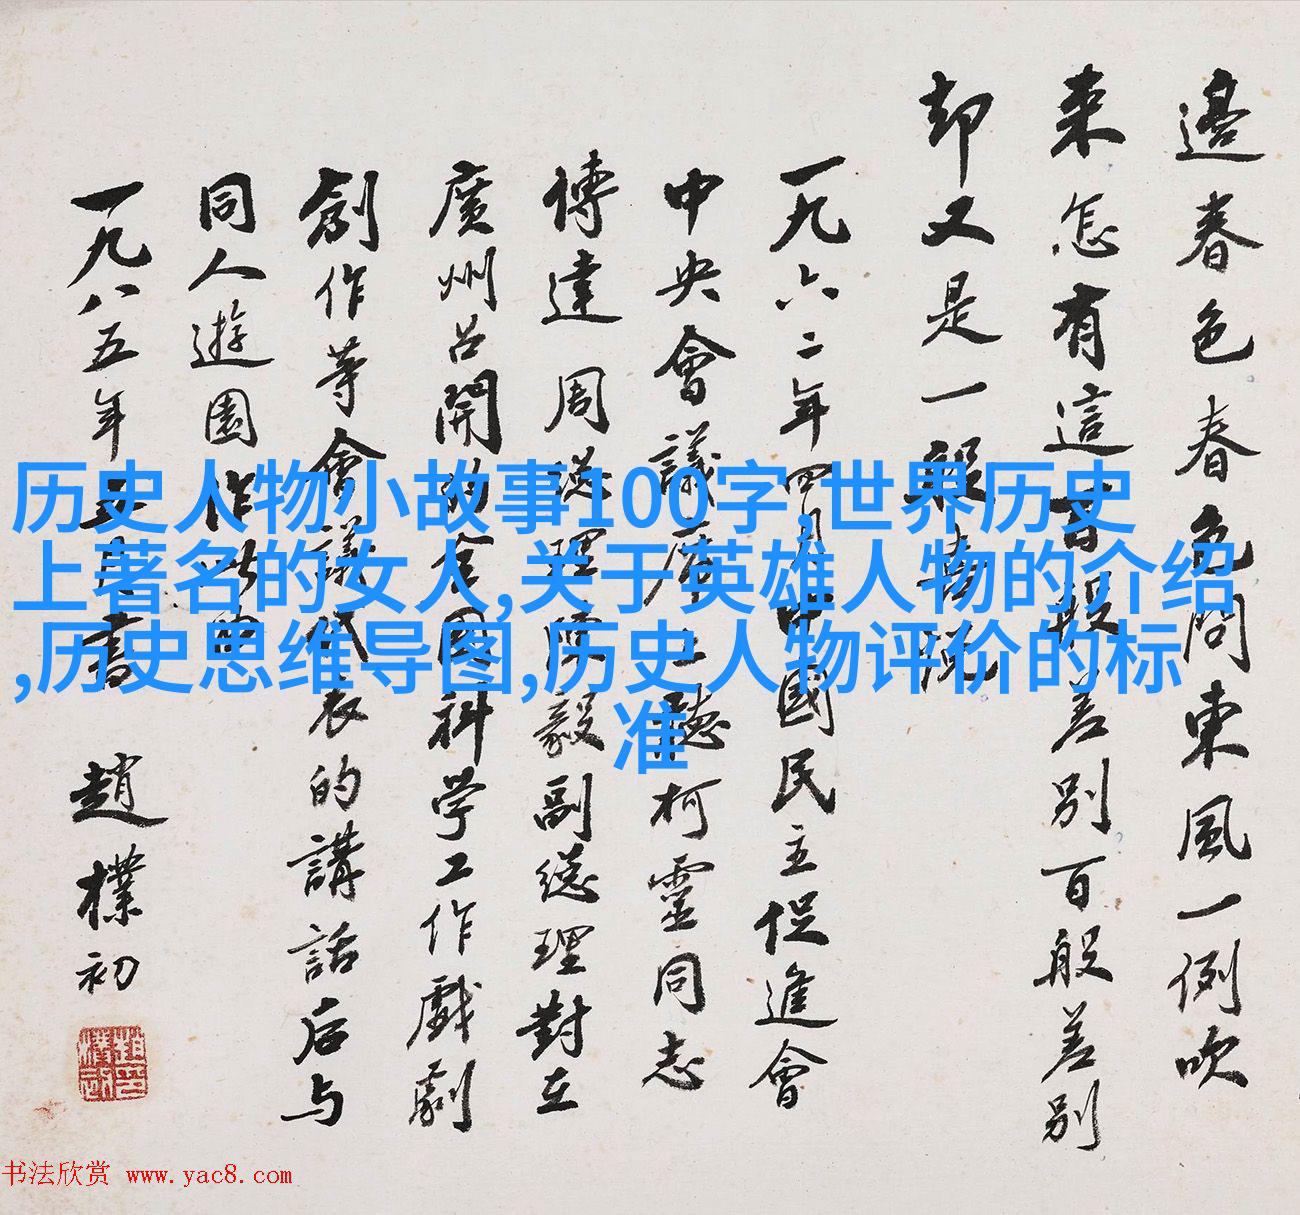 邊春色春色問東風一例吹
来怎有這百般差别百般差别
却又是一般
一九六二年四月中國民主促進會
中央會議席上聽柯靈同志
傳達周總理陳毅副總理對在
廣州召開的全國科学工作戲劇
創作等會議代表的講話后与
同人遊園作此曲
一九八五年五月書 趙樸初
历史人物小故事100字,世界历史
上著名的女人,关于英雄人物的介绍
,历史思维导图,历史人物评价的标
准
书法欣赏 www.yac8.com